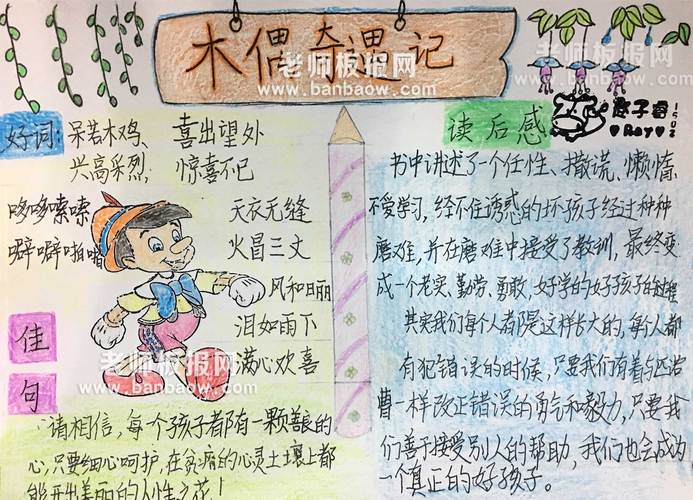 木偶奇遇记
老师板报网
www.banbaow.com
老师板报网
www.banbaow.com
1502
♥Ray♥
好词:
呆若木鸡、喜出望外
兴高采烈、惊喜不已
哆哆嗦嗦
天衣无缝
噼噼啪啪
火冒三丈
风和日丽
泪如雨下
满心欢喜
老师板报网
www.banbaow.com
佳
句
请相信,每个孩子都有一颗善良的
心,只要细心呵护,在贫瘠的心灵土壤上都
能开出美丽的人性之花!
读后感
书中讲述了一个任性、撒谎、懒惰、
不爱学习,经不住诱惑的坏孩子经过种种
磨难,并在磨难中接受了教训,最终变
成一个老实、勤劳、勇敢,好学的好孩子的过程
其实我们每个人都是这样长大的,每个人都
有犯错误的时候,只要我们有着与匹诺
曹一样改正错误的勇气和毅力,只要我
们善于接受别人的帮助,我们也会成为
一个真正的好孩子。
老师板报网
www.banbaow.com